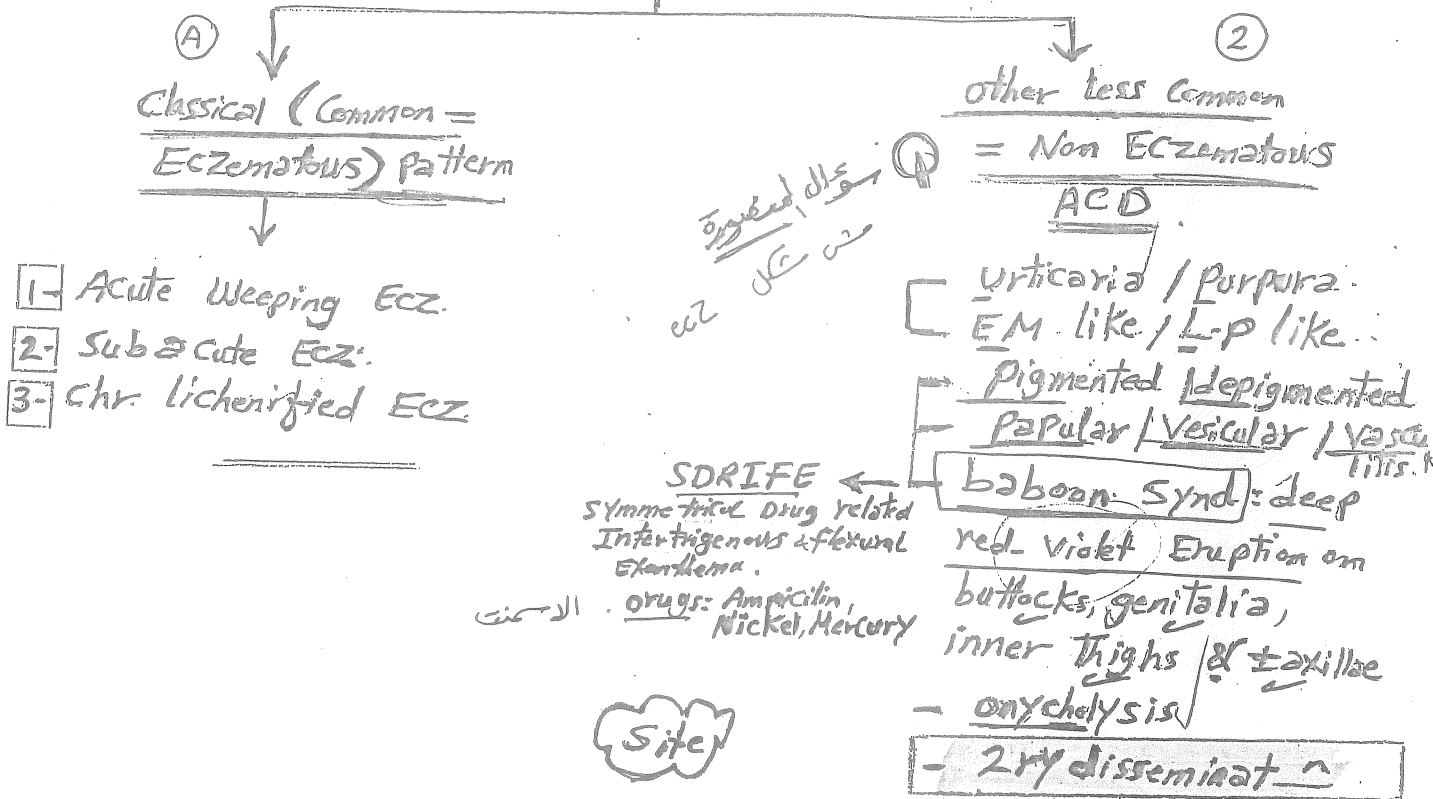 A
Classical (Common =
Eczematous) pattern
1- Acute Weeping Ecz.
2- Subacute Ecz.
3- Chr. lichenified Ecz
2
other less Common
Q = Non Eczematous
ACD
سؤال
مش شكل
ecz
Urticaria / Purpura.
EM like / L-P like..
- Pigmented / depigmented
- Papular / Vesicular / Vascu
litis.*
baboon Synd = deep
red-Violet Eruption on
buttocks, genitalia,
inner Thighs & ± axillae
- onycholysis
- 2ry disseminat^n
SDRIFE
Symmetrical Drug related
Intertrigenous & flexural
Exanthema.
Drugs: Ampicilin,
Nickel, Mercury
الاسمنت
Site